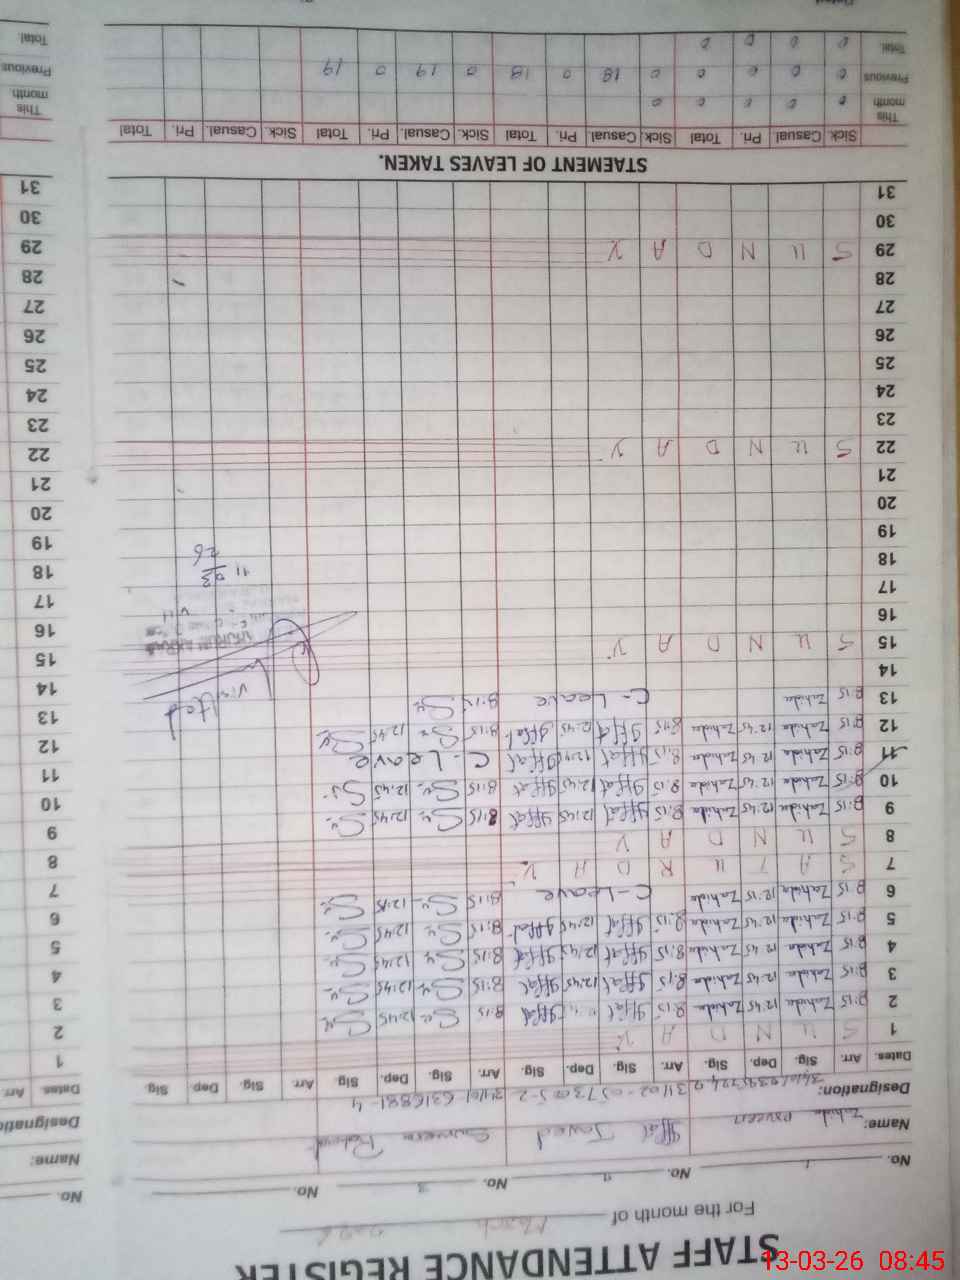 STAFF ATTENDANCE REGISTER
For the month of March 2026
No. 1 No. 2 No. 3 No.
Name: Zahida Parveen Iffat Javed
Designation:
Dates. Arr. Sig. Dep. Sig. Arr. Sig. Dep. Sig. Arr. Sig. Dep. Sig. Arr Sig. Dep Sig.
1 S U N D A Y
2 8:15 Zahida 12:45 Zahida 8:15 Iffat Iffat 8:15 12:45
3 8:15 Zahida 12:45 Zahida 8:15 Iffat 12:45 Iffat 8:15 12:45
4 8:15 Zahida 12:45 Zahida 8:15 Iffat 12:45 Iffat 8:15 12:45
5 8:15 Zahida 12:45 Zahida 8:15 Iffat 12:45 Iffat 8:15 12:45
6 8:15 Zahida 12:15 Zahida C-Leave 8:15 12:15
7 S A T U R D A Y
8 S U N D A Y
9 8:15 Zahida 12:45 Zahida 8:15 Iffat 12:45 Iffat 8:15 12:45
10 8:15 Zahida 12:45 Zahida 8:15 Iffat 12:45 Iffat 8:15 12:45
11 8:15 Zahida 12:45 Zahida 8:15 Iffat 12:45 Iffat C-Leave
12 8:15 Zahida 12:45 Zahida 8:15 Iffat 12:45 Iffat 8:15 12:45
13 8:15 Zahida C-Leave 8:15
Visited
14
15 S U N D A Y
16
17
11 03
26
18
19
20
21
22 S U N D A Y
23
24
25
26
27
28
29 S U N D A Y
30
31
STAEMENT OF LEAVES TAKEN.
Sick Casual Pri. Total Sick. Casual. Pri. Total Sick. Casual. Pri. Total Sick. Casual. Pri. Total
This month 0 0 0 0 0
Previous 0 0 0 0 0 18 0 18 0 19 0 19
Total 0 0 0 0
No.
Name:
Designation
Dates Arr
1
2
3
4
5
6
7
8
9
10
11
12
13
14
15
16
17
18
19
20
21
22
23
24
25
26
27
28
29
30
31
This month
Previous
Total
13-03-26 08:45